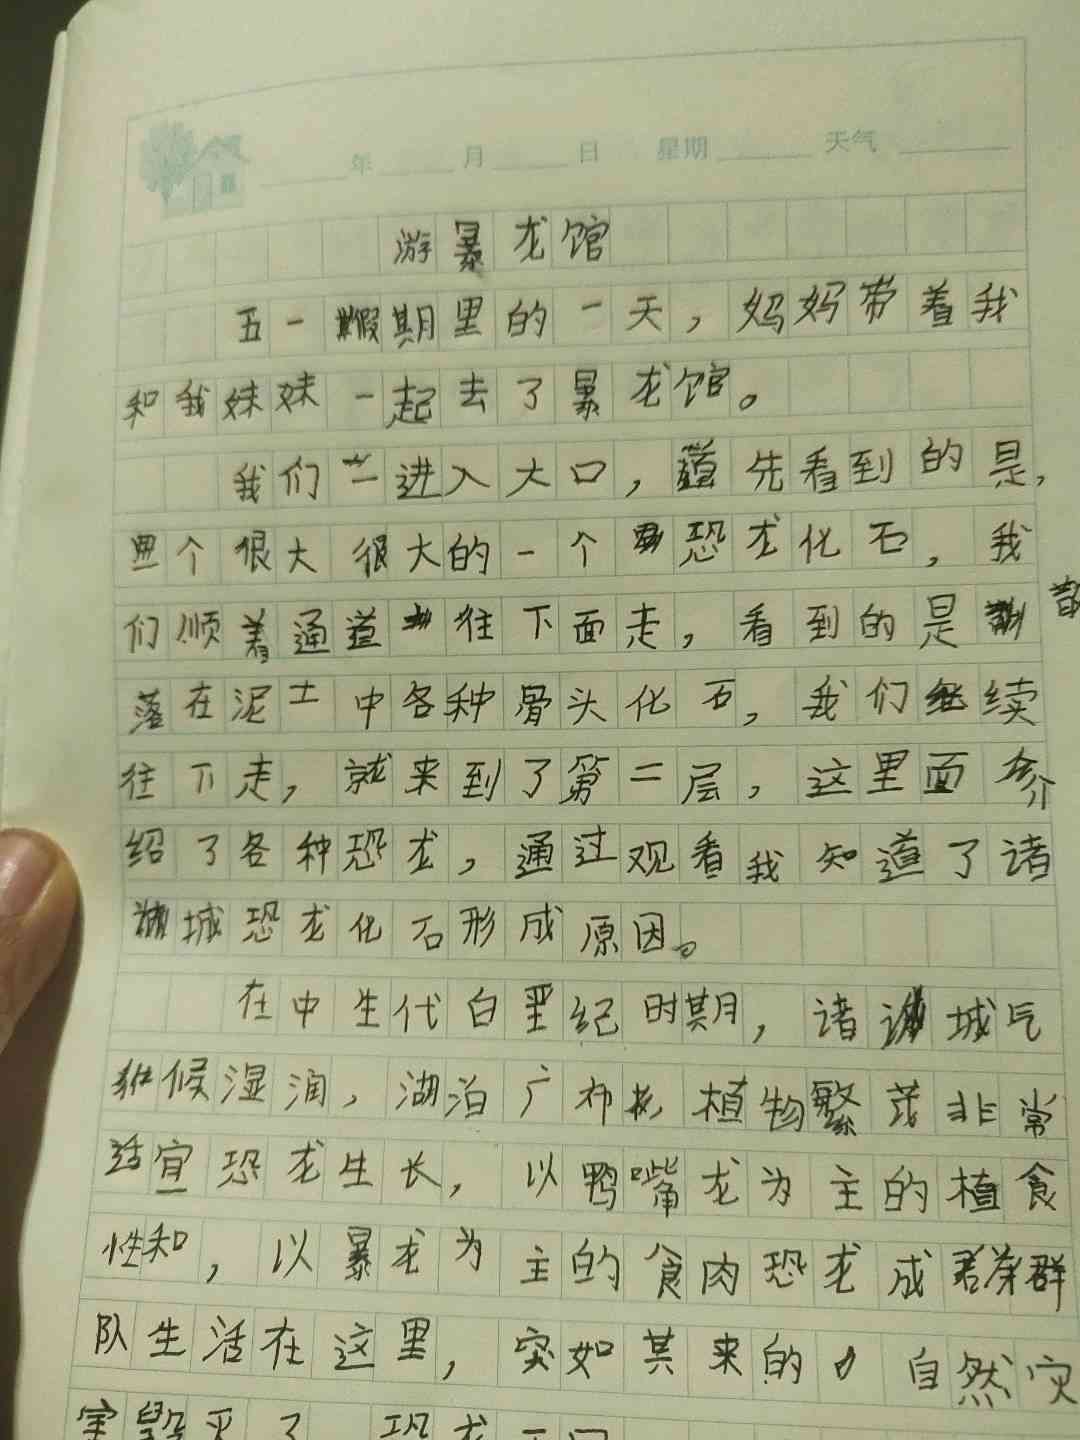 年 月 日 星期 天气
游暴龙馆
五一假期里的一天，妈妈带着我
和我妹妹一起去了暴龙馆。
我们一进入大口，首先看到的是，
个很大很大的一个恐龙化石，我
们顺着通道往下面走，看到的是散
落在泥土中各种骨头化石，我们继续
往下走，就来到了第二层，这里面介
绍了各种恐龙，通过观看我知道了诸
城恐龙化石形成原因。
在中生代白垩纪时期，诸城气
候湿润，湖泊广布，植物繁茂非常
适宜恐龙生长，以鸭嘴龙为主的植食
性和，以暴龙为主的食肉恐龙成群
队生活在这里，突如其来的自然灾
害毁灭了恐龙王国